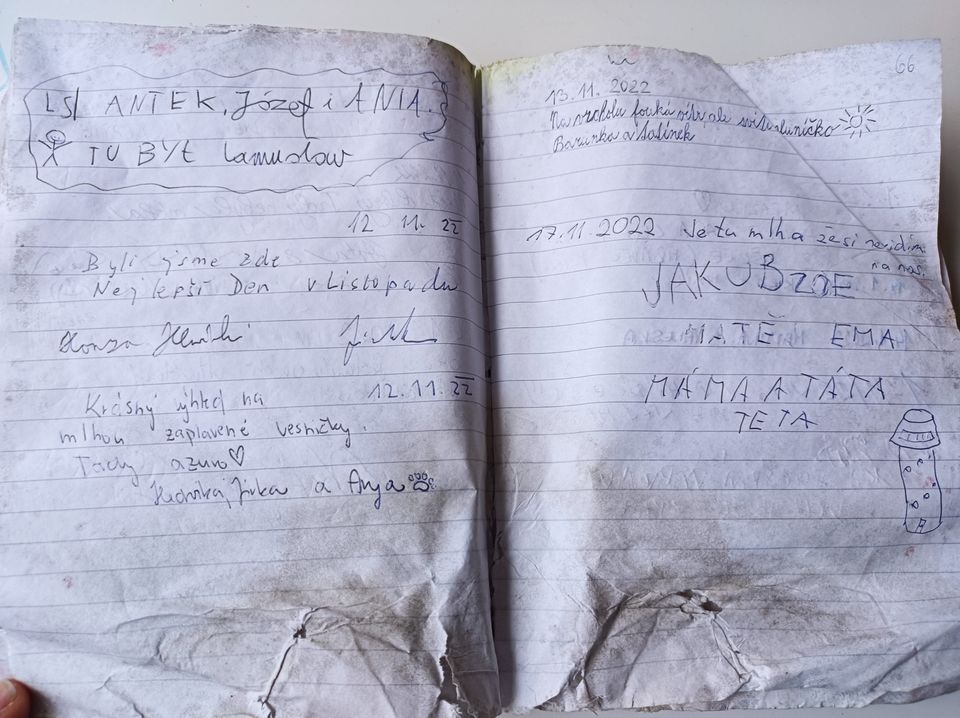 LSI ANTEK, Józef i ANIA.
TU BYŁ
12 11. 22
Byli jsme zde
Nejlepší Den v Listopadu
Honza
12.11.22
Krásný výhled na
mlhou zaplavené vesničky.
Tady azuro♡
Jirka a Anya
66
13.11.2022
Na vrcholu fouká vítr, ale svítí sluníčko
Barunka a tatínek
17.11.2022 Je tu mlha že si nevidím
na nos.
JAKUB ZOE
MATĚ EMA
MÁMA A TÁTA
TETA